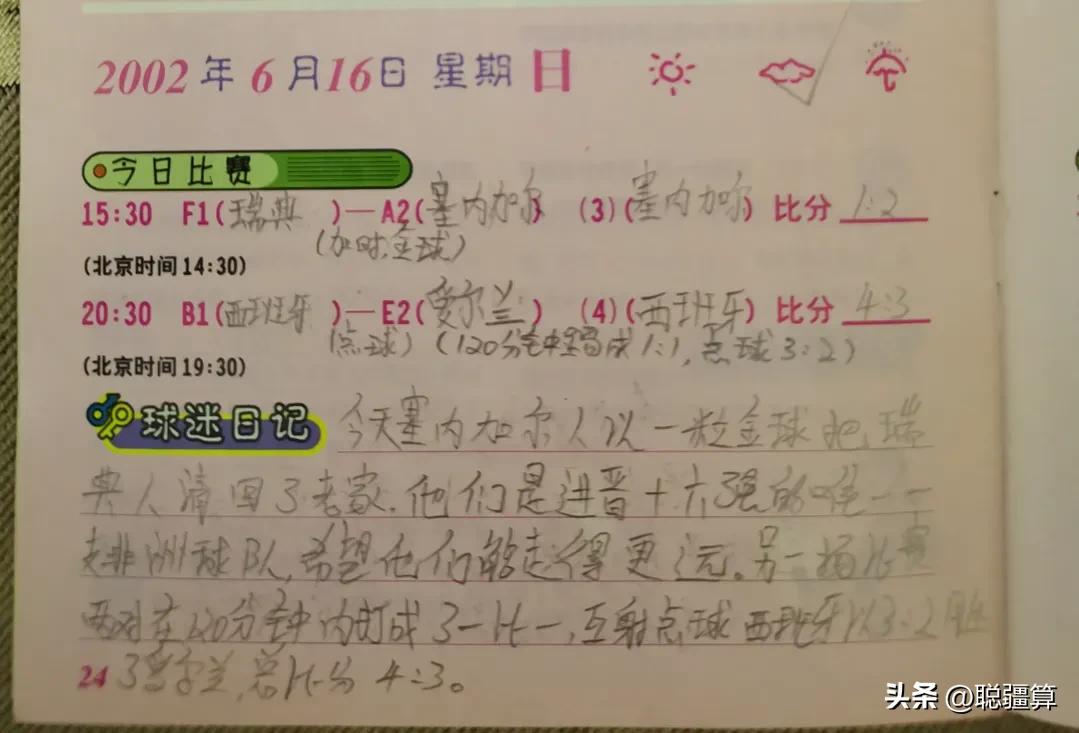 2002年6月16日 星期日
今日比赛
15:30 F1(瑞典 )—A2(塞内加尔) (3)(塞内加尔) 比分 1:2
(加时,金球)
(北京时间14:30)
20:30 B1(西班牙 )—E2(爱尔兰) (4)(西班牙) 比分 4:3
(点球) (120分钟内 成1:1,点球3:2)
(北京时间19:30)
球迷日记 今天塞内加尔人以一粒金球把瑞
典人请回了老家.他们是进晋十六强的唯一一
支非洲球队,希望他们能走得更远。另一场比赛
两对在120分钟内打成了一比一,互射点球西班牙以3:2胜
了爱尔兰,总比分4:3。
24
头条 @聪疆算